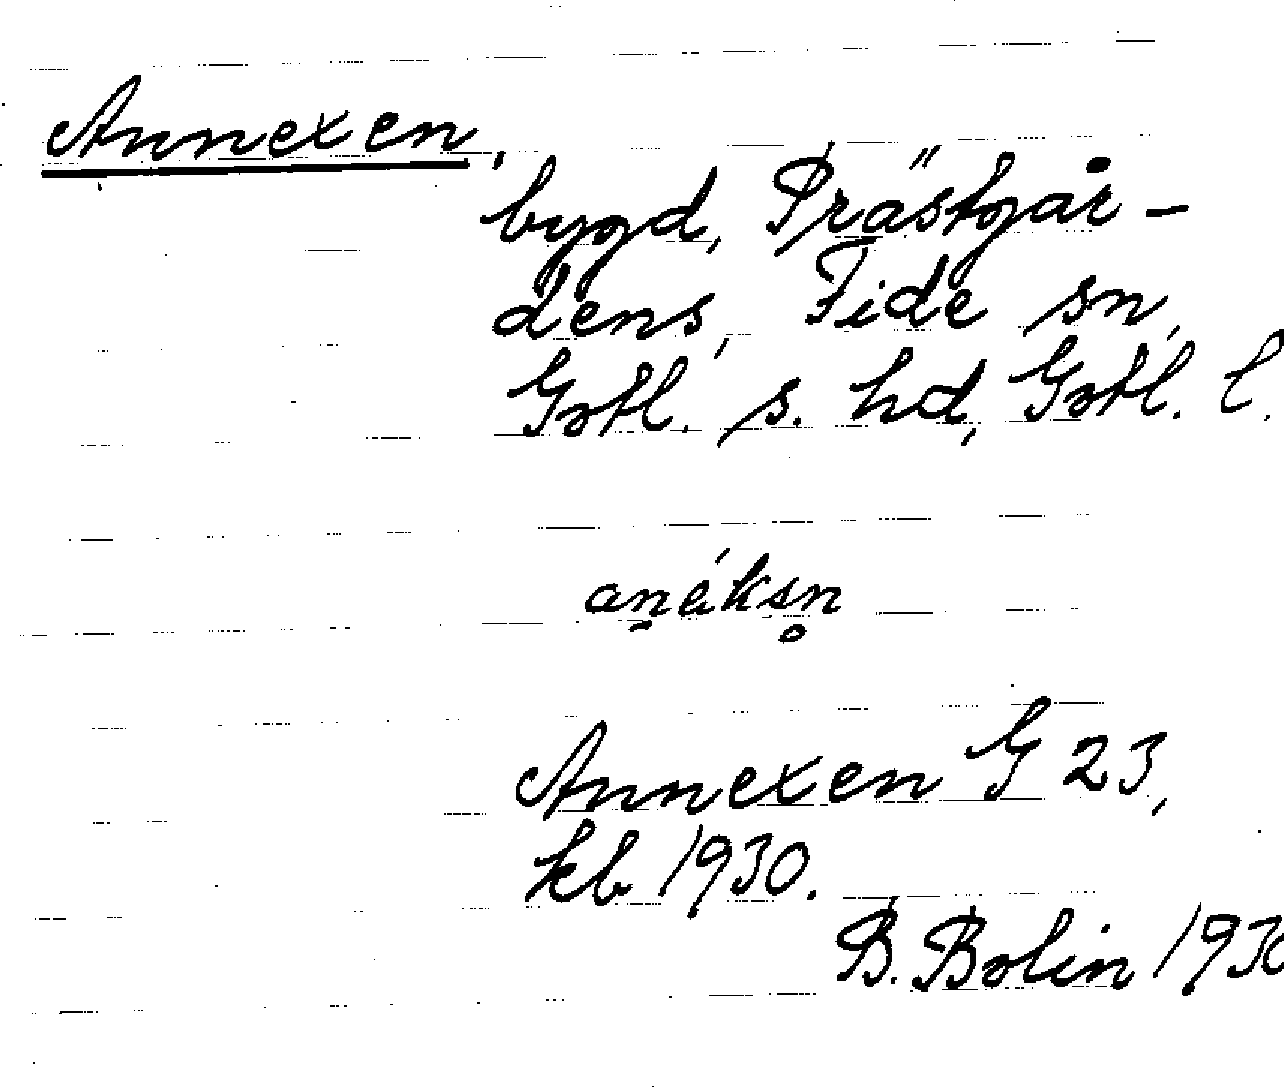 Annexen,
bygd, Prästgår-
dens, Fide sn,
Gotl. s. hd, Gotl. l.
aní̱̱éksn̥
Annexen G 23,
kb 1930.
B. Bolin 1930